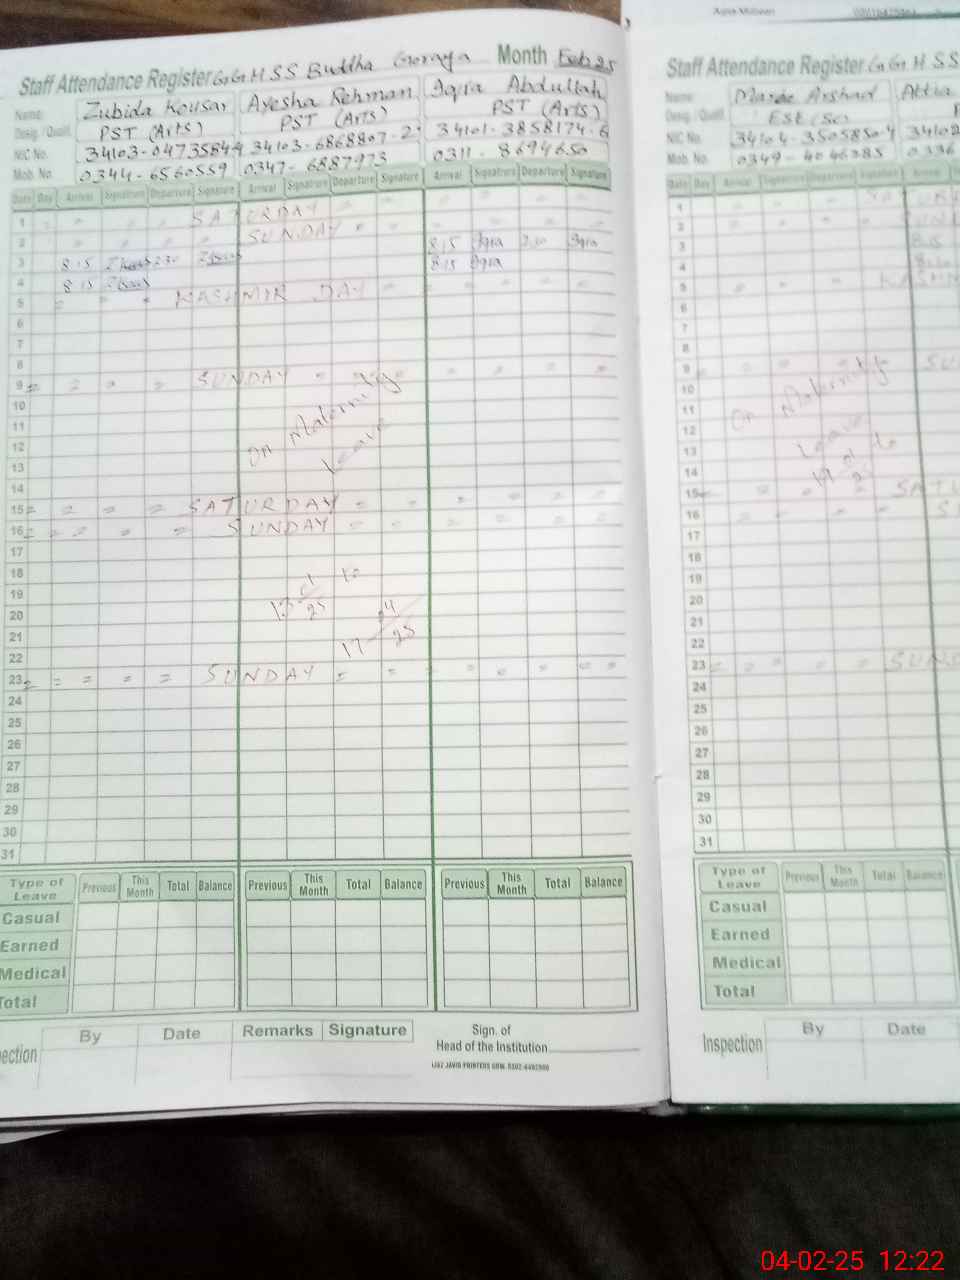 Staff Attendance Register G.G.H.S.S Buddha Goraya Month Feb 25
Name: Zubida Kousar Ayesha Rehman Iqra Abdullah
Desig. / Qualif. PST (Arts) PST (Arts) PST (Arts)
NIC No. 34103-0473584-4 34103-6868807-2 34101-3858174-6
Mob. No. 0344-6560559 0347-6887973 0311-8694650
Date Day Arrival Signature Departure Signature Arrival Signature Departure Signature Arrival Signature Departure Signature
1 SATURDAY
2 SUNDAY
3 8:15 2:30 8:15 Iqra 2:30 Iqra
4 8:15 8:15 Iqra
5 KASHMIR DAY
6
7
8
9 SUNDAY
10
11
12
13
14
On Maternity
Leave
15 SATURDAY
16 SUNDAY
17
18
19
20
21
22
to
17
25
23 SUNDAY
24
25
26
27
28
29
30
31
Type of Leave Previous This Month Total Balance Previous This Month Total Balance Previous This Month Total Balance
Casual
Earned
Medical
Total
By Date Remarks Signature Sign. of
Head of the Institution
Staff Attendance Register G.G.H.S.S
Name: Arshad Attia
Desig. / Qualif. ESE (Sc)
NIC No. 34104-3505850-4
Mob. No. 0349-4046285 0336
Date Day Arrival Signature Departure Signature Arrival
1
2
3 8:15
4
5
6
7
8
9
10
11
12
13
14
On Maternity
Leave
15
16
17
18
19
20
21
22
23
24
25
26
27
28
29
30
31
Type of Leave Previous This Month Total Balance
Casual
Earned
Medical
Total
Inspection By Date
04-02-25 12:22